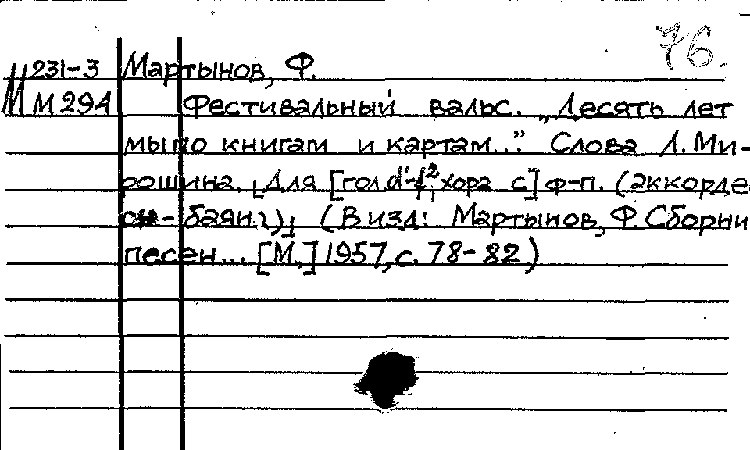 76.
231-3 Мартынов, Ф.
М М294 Фестивальный вальс. „Десять лет
мы по книгам и картам...” Слова Л. Ми-
рошина. Для хора с] ф-п. (аккорде
баян.) (В изд: Мартынов, Ф. Сборни
песен... [М.,] 1957, с. 78-82)